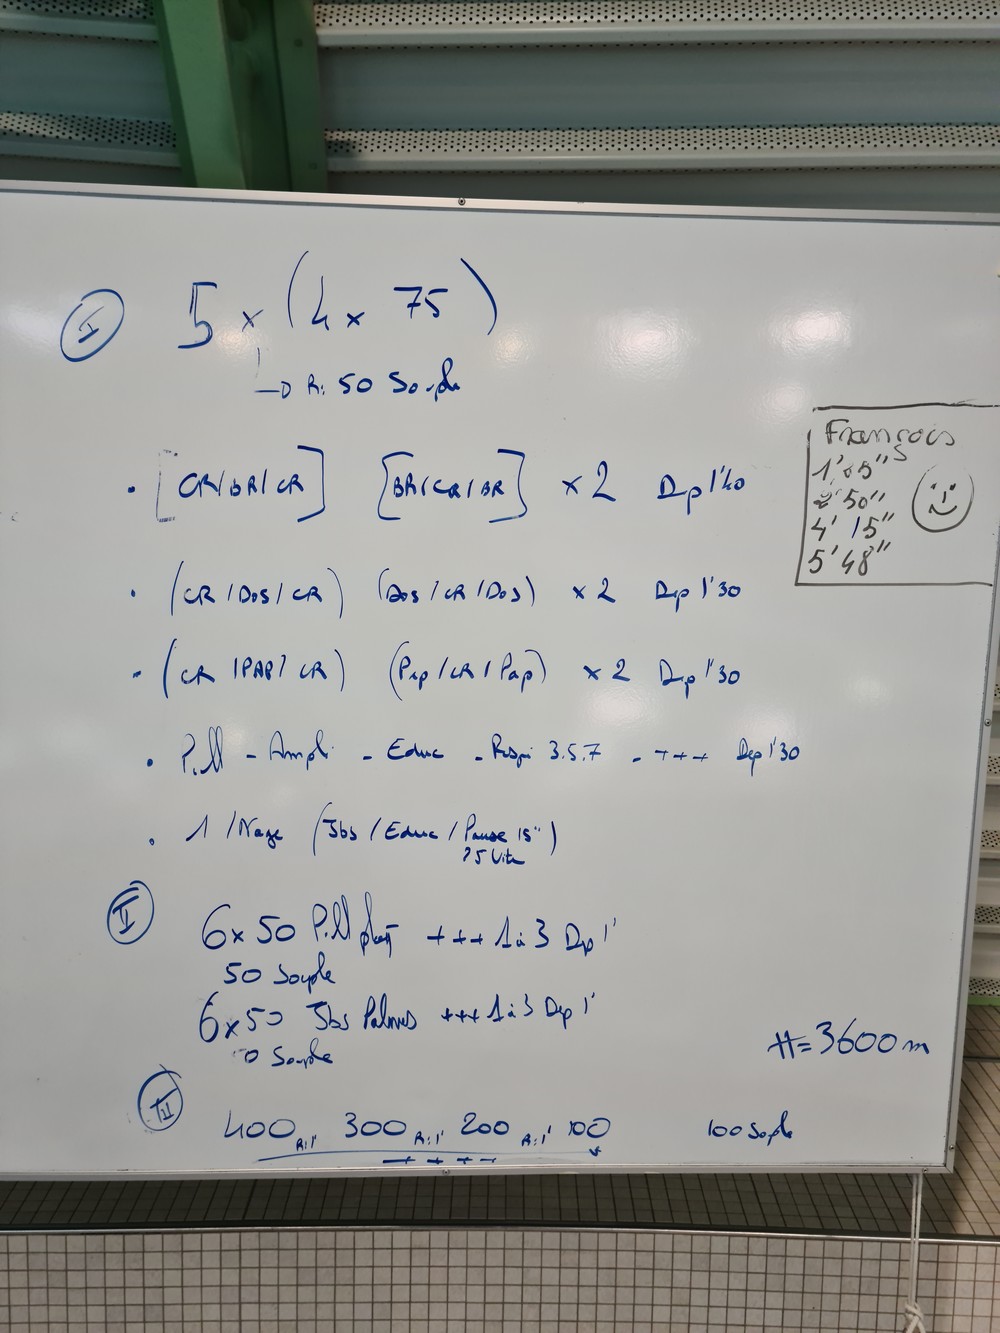 I 5 x (4 x 75)
→ R: 50 Souple
• [CR/BR/CR] [BR/CR/BR] x2 Dep 1'40
• (CR/Dos/CR) (Dos/CR/Dos) x2 Dep 1'30
• (CR/PAP/CR) (Pap/CR/Pap) x2 Dep 1'30
• Pull - Ampli - Educ - Respi 3.5.7 - +++ Dep 1'30
• 1/Nage (Jbs/Educ/Pause 15")
25 Vite
II 6x50 Pull plaq +++ 1 à 3 Dep 1'
50 Souple
6x50 Jbs Palmes +++ 1 à 3 Dep 1'
0 Souple
III 400 R:1' 300 R:1' 200 R:1' 100 100 Souple
++++
#=3600m
François
5"
2'50"
4'15"
5'48"